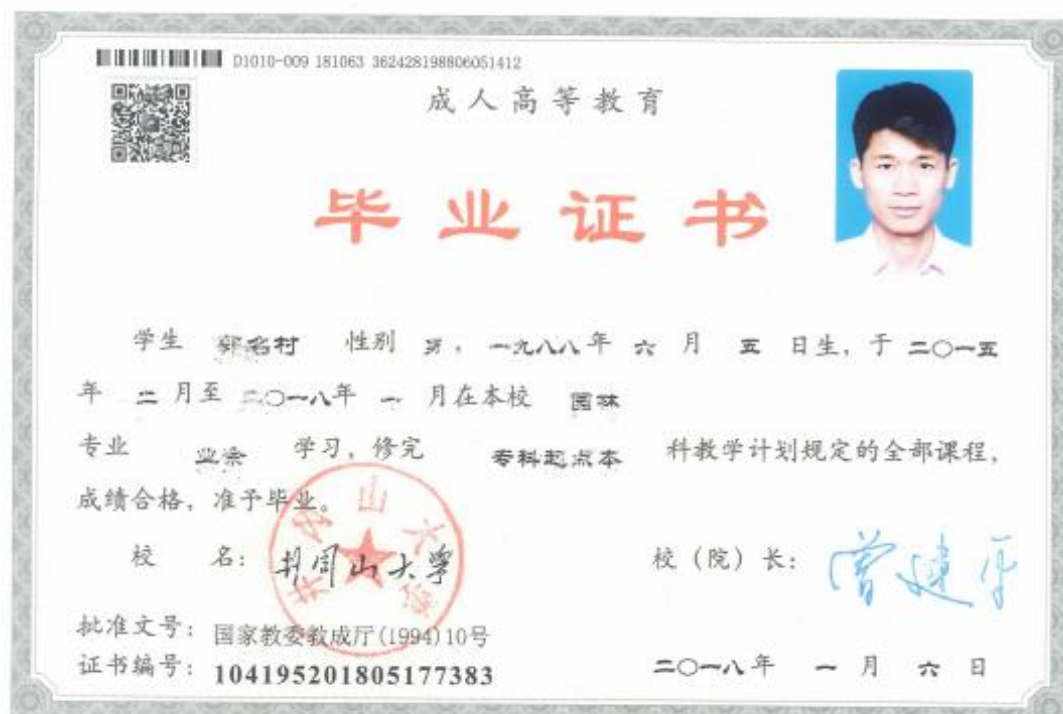 D1010-009 181063 362428198806051412
成人高等教育
毕业证书
学生 郭名村 性别 男，一九八八年 六 月 五 日生，于 二〇一五
年 二 月至 二〇一八年 一 月在本校 园林
专业 业余 学习，修完 专科起点本 科教学计划规定的全部课程，
成绩合格，准予毕业。
校 名：井冈山大学
校（院）长：曾建平
井冈山大学
批准文号：国家教委教成厅(1994)10号
证书编号：104195201805177383
二〇一八年 一 月 六 日